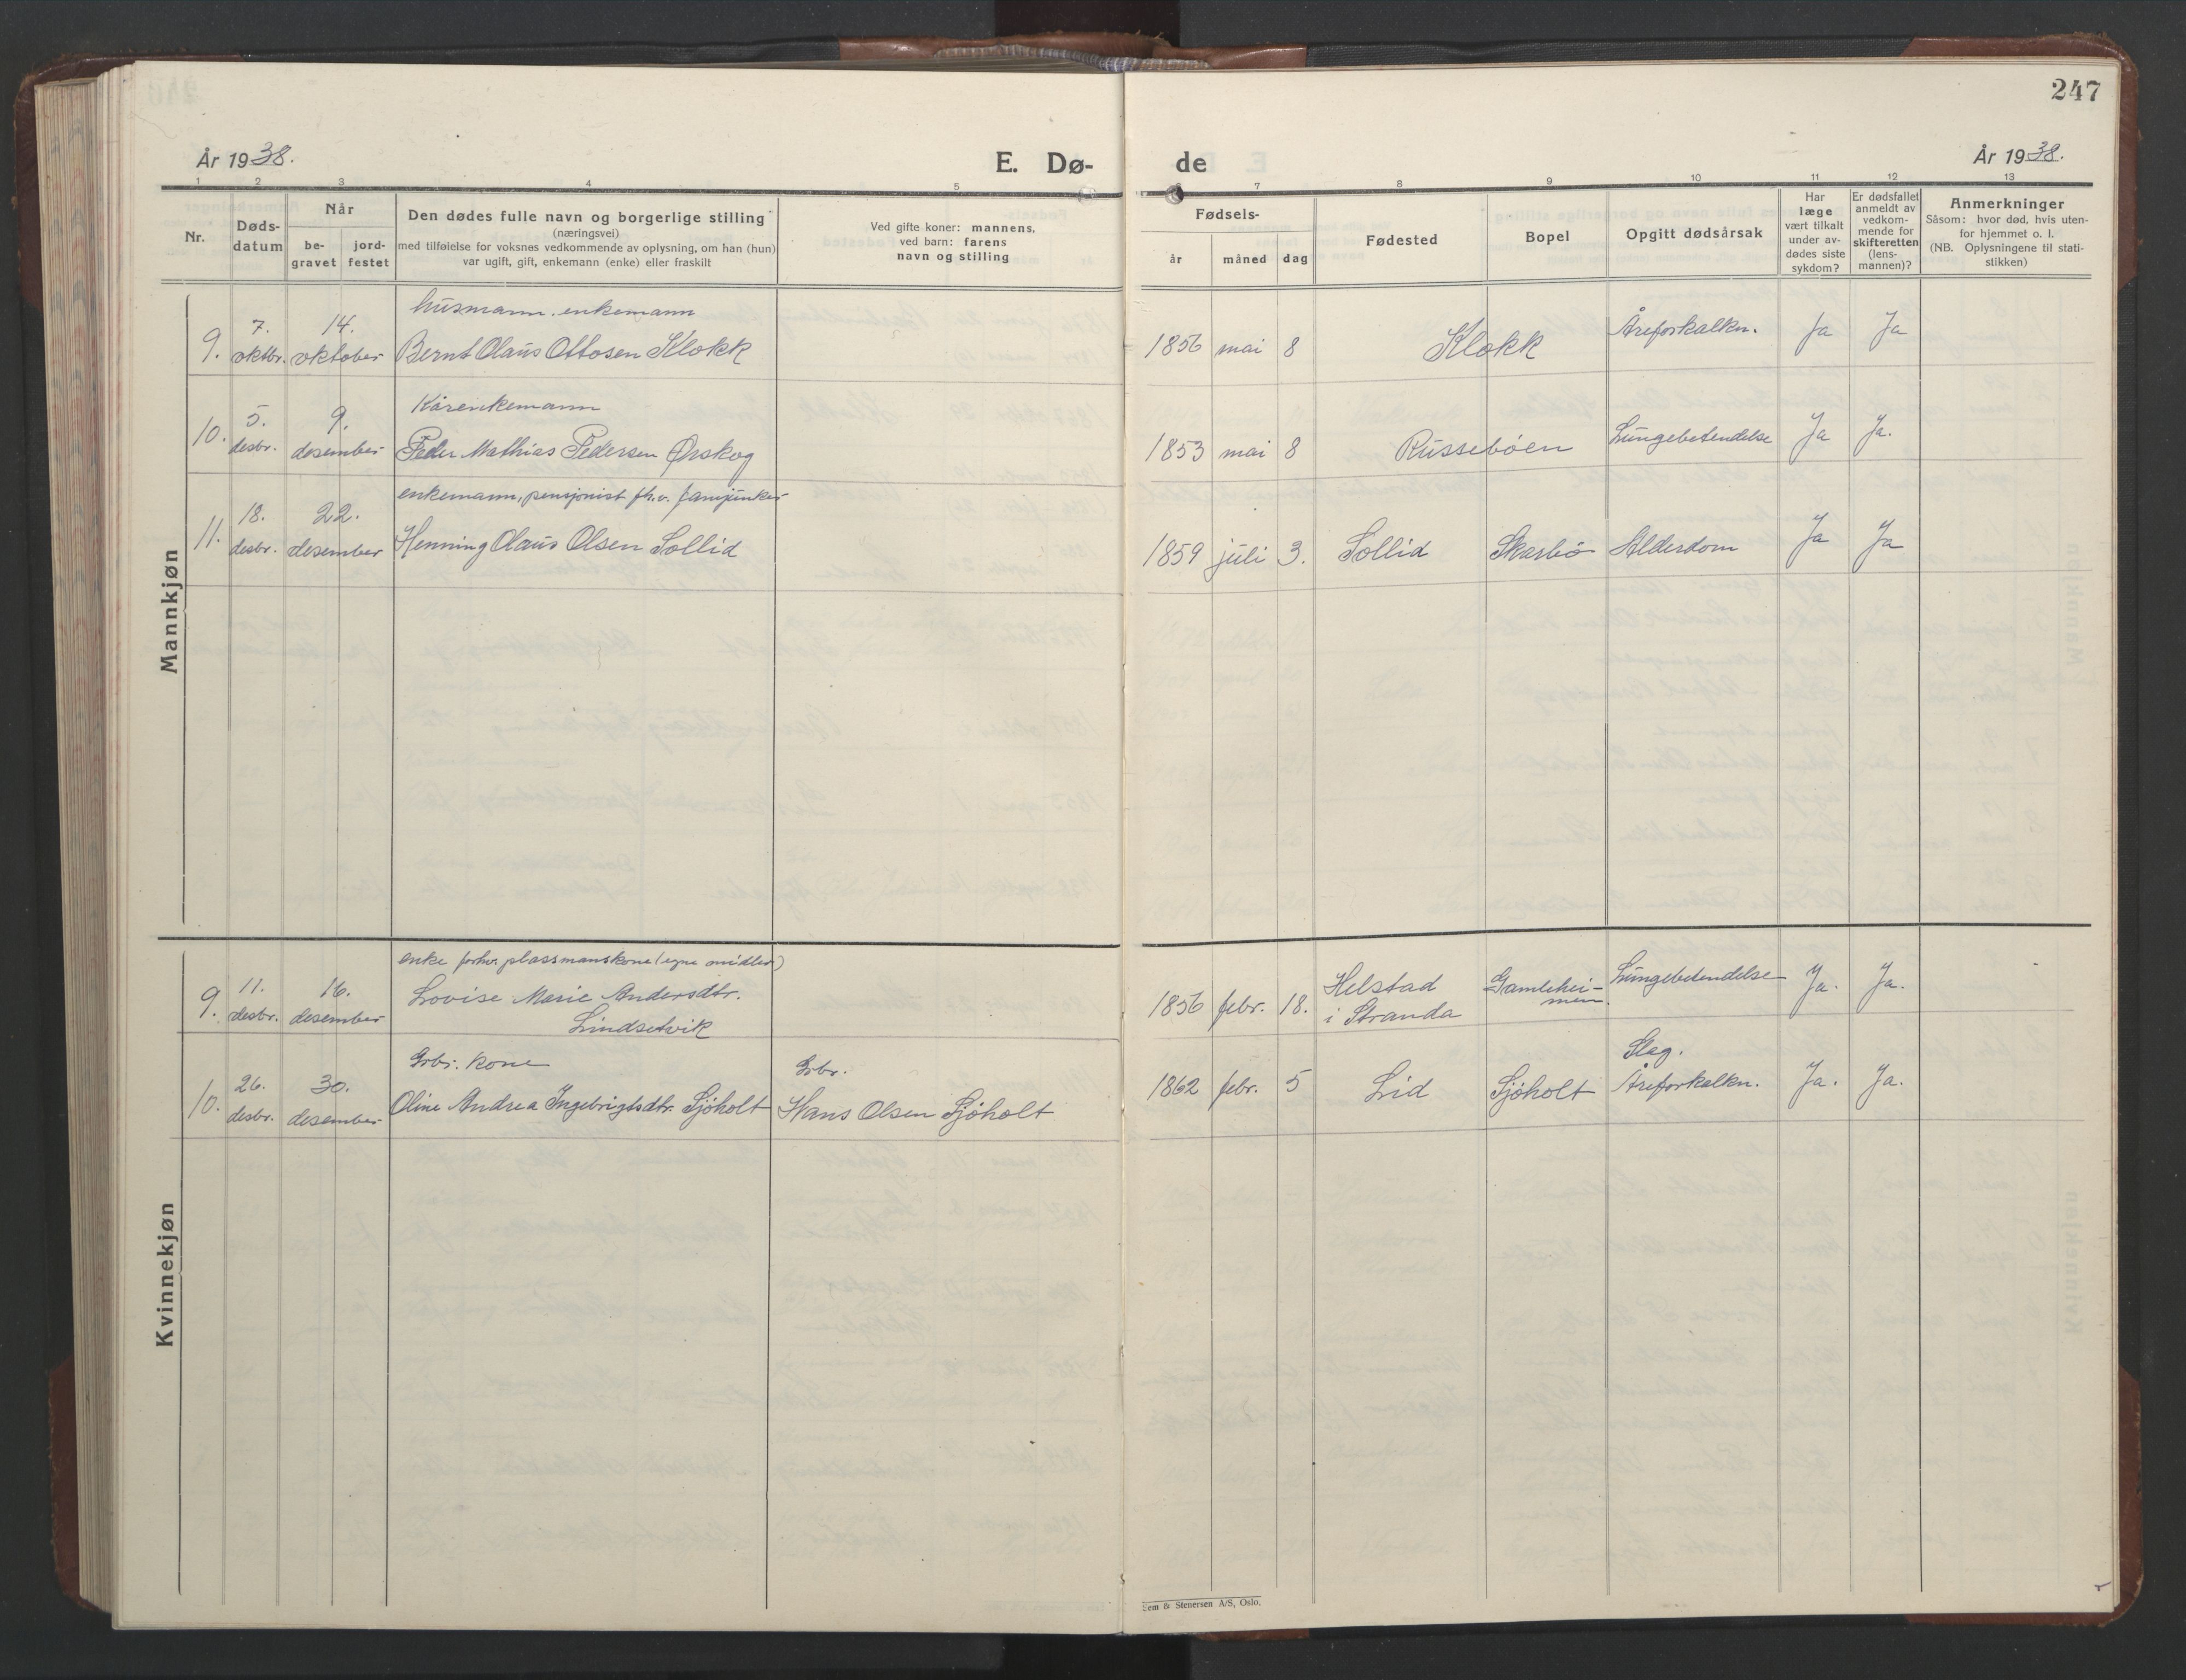 247
År 1938.
E. Dø-
de
År 1938.
1 2 3 4 5 6 7 8 9 10 11 12 13
Nr.
Døds-
datum
Når
be-
gravet
jord-
festet
Den dødes fulle navn og borgerlige stilling
(næringsvei)
med tilføielse for voksnes vedkommende av oplysning, om han (hun)
var ugift, gift, enkemann (enke) eller fraskilt
Ved gifte koner: mannens,
ved barn: farens
navn og stilling
Fødsels-
år måned dag
Fødested
Bopel
Opgitt dødsårsak
Har
læge
vært tilkalt
under av-
dødes siste
sykdom?
Er dødsfallet
anmeldt av
vedkom-
mende for
skifteretten
(lens-
mannen)?
Anmerkninger
Såsom: hvor død, hvis uten-
for hjemmet o. l.
(NB. Oplysningene til stati-
stikken)
Mannkjøn
husmann. enkemann
9. 7. oktbr. 14. oktober Bernt Olaus Ottosen Klokk 1856 mai 8 Klokk Åreforkalkn. Ja Ja
Kårenkemann
10. 5. desbr. 9. desember Peder Mathias Pedersen Ørskog 1853 mai 8 Russebøen Lungebetendelse Ja Ja.
enkemann, pensjonist fh.v. fanejunker
11. 18. desbr. 22. desember Henning Olaus Olsen Sollid 1859 juli 3. Sollid Skarbø Alderdom Ja Ja
Kvinnekjøn
enke forhv. plassmanskone (egne midler)
9. 11. desbr. 16. desember Lovise Marie Andersdtr.
Lindsetvik
1856 febr. 18. Helstad
i Stranda
Gamlehei-
men.
Lungebetendelse Ja. Ja.
Gbr. kone
10. 26. desbr. 30. desember Oline Andrea Ingebrigtsdtr. Sjøholt
Gbr.
Hans Olsen Sjøholt
1862 febr. 5 Lid Sjøholt
Slag.
Åreforkalkn. Ja. Ja.
Sem & Stenersen A/S, Oslo.